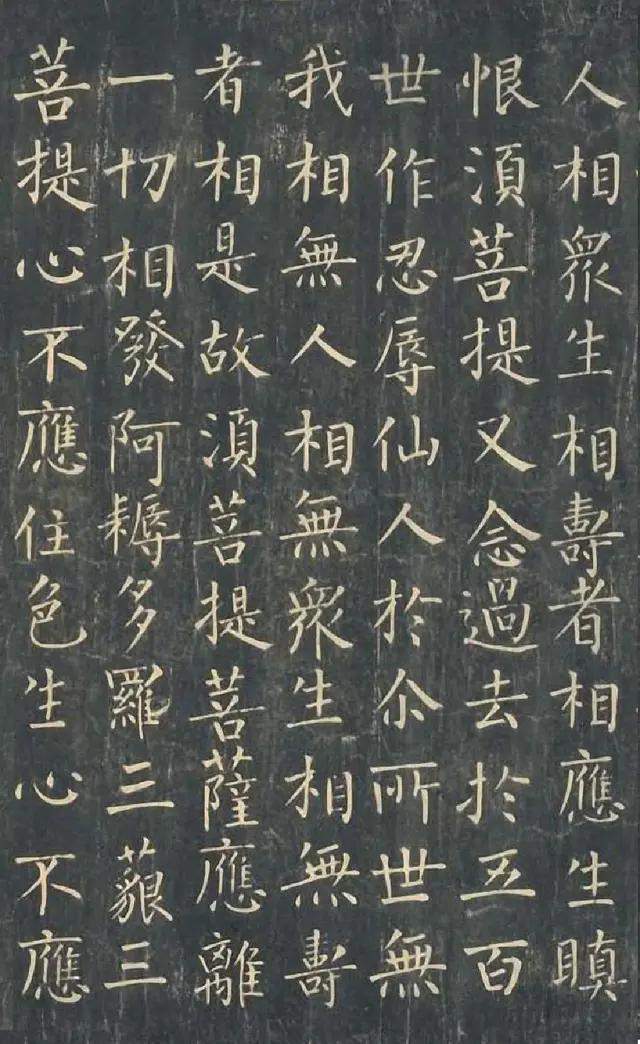 人相衆生相壽者相應生瞋
恨須菩提又念過去於五百
世作忍辱仙人於尒所世無
我相無人相無衆生相無壽
者相是故須菩提菩薩應離
一切相發阿耨多羅三藐三
菩提心不應住色生心不應